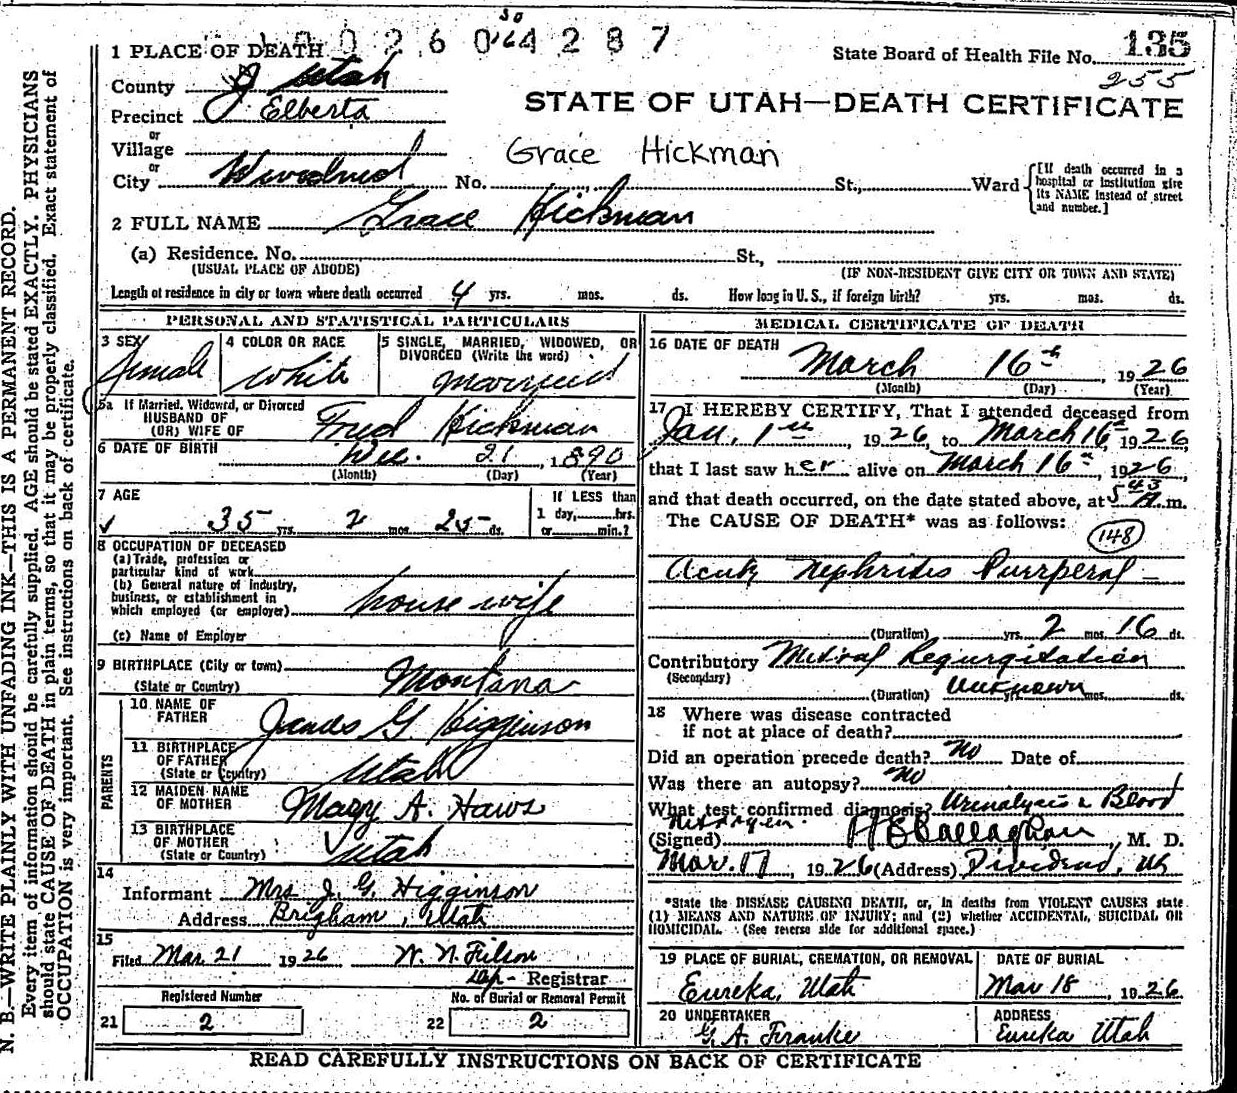 1 PLACE OF DEATH 0026 04287
County Utah
State Board of Health File No. 135
255
Precinct Elberta
STATE OF UTAH—DEATH CERTIFICATE
or
Village
Grace Hickman
or
City No. St., Ward [If death occurred in a hospital or institution give its NAME instead of street and number.]
2 FULL NAME Grace Hickman
(a) Residence. No. St.,
(USUAL PLACE OF ABODE) (IF NON-RESIDENT GIVE CITY OR TOWN AND STATE)
Length of residence in city or town where death occurred 4 yrs. mos. ds. How long in U.S., if foreign birth? yrs. mos. ds.
PERSONAL AND STATISTICAL PARTICULARS
3 SEX female
4 COLOR OR RACE White
5 SINGLE, MARRIED, WIDOWED, OR DIVORCED (Write the word) Married
5a If Married, Widowed, or Divorced
HUSBAND OF
(OR) WIFE OF Fred Hickman
6 DATE OF BIRTH Dec. 21, 1890
(Month) (Day) (Year)
7 AGE
35 yrs. 2 mos. 25 ds.
If LESS than
1 day, hrs.
or min.?
8 OCCUPATION OF DECEASED
(a) Trade, profession or
particular kind of work
(b) General nature of industry,
business, or establishment in
which employed (or employer) house-wife
(c) Name of Employer
9 BIRTHPLACE (City or town)
(State or Country) Montana
PARENTS
10 NAME OF FATHER James G Higginson
11 BIRTHPLACE OF FATHER
(State or Country) Utah
12 MAIDEN NAME OF MOTHER Mary A. Haws
13 BIRTHPLACE OF MOTHER
(State or Country) Utah
14
Informant Mrs J. G. Higginson
Address Brigham, Utah
15
Filed Mar 21 1926 W. N. Filson
Dep- Registrar
Registered Number
21 2
No. of Burial or Removal Permit
22 2
MEDICAL CERTIFICATE OF DEATH
16 DATE OF DEATH
March 16th, 1926
(Month) (Day) (Year)
17 I HEREBY CERTIFY, That I attended deceased from
Jan. 1st, 1926, to March 16th 1926,
that I last saw her alive on March 16th, 1926,
and that death occurred, on the date stated above, at 5 43 A m.
The CAUSE OF DEATH* was as follows:
148
Acute Nephritis Puerperal —
(Duration) yrs. 2 mos. 16 ds.
Contributory Mitral Regurgitation
(Secondary)
(Duration) Unknown yrs. mos. ds.
18 Where was disease contracted
if not at place of death?
Did an operation precede death? No Date of
Was there an autopsy? No
What test confirmed diagnosis? Urinalysis & Blood
Nitrogen.
(Signed) Callaghan, M. D.
Mar. 17, 1926 (Address) Dividend, Ut
*State the DISEASE CAUSING DEATH, or, in deaths from VIOLENT CAUSES state
(1) MEANS AND NATURE OF INJURY; and (2) whether ACCIDENTAL, SUICIDAL OR
HOMICIDAL. (See reverse side for additional space.)
19 PLACE OF BURIAL, CREMATION, OR REMOVAL
Eureka, Utah
DATE OF BURIAL
Mar 18, 1926
20 UNDERTAKER
G. A. Franke
ADDRESS
Eureka Utah
READ CAREFULLY INSTRUCTIONS ON BACK OF CERTIFICATE
N. B.—WRITE PLAINLY WITH UNFADING INK—THIS IS A PERMANENT RECORD.
Every item of information should be carefully supplied. AGE should be stated EXACTLY. PHYSICIANS
should state CAUSE OF DEATH in plain terms, so that it may be properly classified. Exact statement of
OCCUPATION is very important. See instructions on back of certificate.